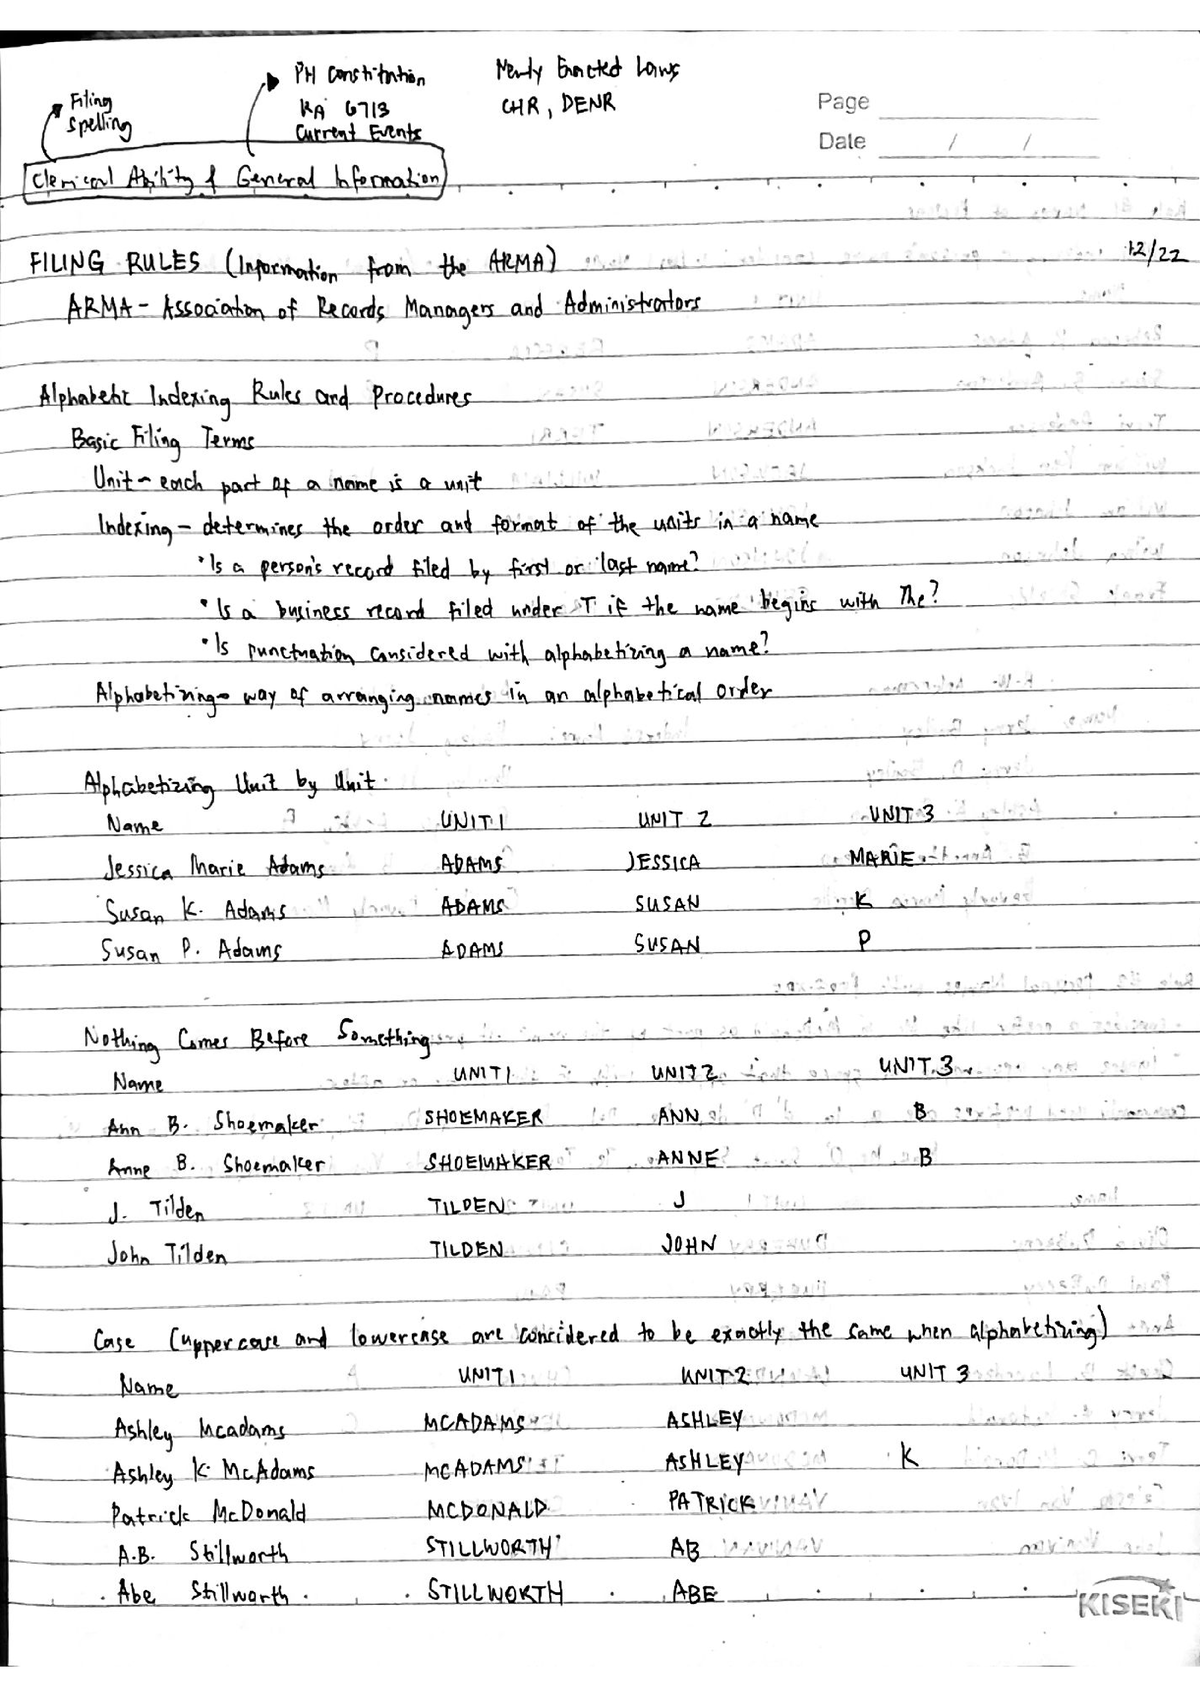 Filing
Spelling
PH Constitution
RA 6713
Current Events
Newly Enacted Laws
CHR, DENR
Page
Date / /
Clerical Ability & General Information
FILING RULES (Information from the ARMA) 12/22
ARMA - Association of Records Managers and Administrators
Alphabetic Indexing Rules and Procedures
Basic Filing Terms
Unit - each part of a name is a unit
Indexing - determines the order and format of the units in a name
• Is a person's record filed by first or last name?
• Is a business record filed under T if the name begins with The?
• Is punctuation considered with alphabetizing a name?
Alphabetizing - way of arranging names in an alphabetical order
Alphabetizing Unit by Unit
Name UNIT 1 UNIT 2 UNIT 3
Jessica Marie Adams ADAMS JESSICA MARIE
Susan K. Adams ADAMS SUSAN K
Susan P. Adams ADAMS SUSAN P
Nothing Comes Before Something
Name UNIT 1 UNIT 2 UNIT 3
Ann B. Shoemaker SHOEMAKER ANN B
Anne B. Shoemaker SHOEMAKER ANNE B
J. Tilden TILDEN J
John Tilden TILDEN JOHN
Case (uppercase and lowercase are concidered to be exactly the same when alphabetizing)
Name UNIT 1 UNIT 2 UNIT 3
Ashley Mcadams MCADAMS ASHLEY
Ashley K. McAdams MCADAMS ASHLEY K
Patrick McDonald MCDONALD PATRICK
A.B. Stillworth STILLWORTH AB
Abe Stillworth STILLWORTH ABE
KISEKI